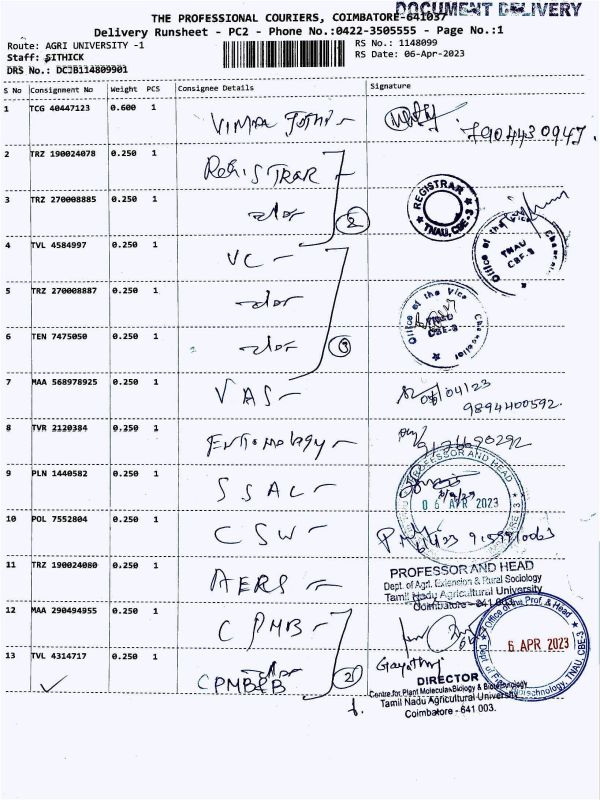 DOCUMENT DELIVERY
THE PROFESSIONAL COURIERS, COIMBATORE-641037
Delivery Runsheet - PC2 - Phone No.:0422-3505555 - Page No.:1
Route: AGRI UNIVERSITY -1
RS No.: 1148099
Staff: SITHICK
RS Date: 06-Apr-2023
DRS No.: DCJB114809901
S No Consignment No Weight PCS Consignee Details Signature
1 TCG 40447123 0.600 1
7904430947.
2 TRZ 190024078 0.250 1 REGISTRAR
REGISTRAR
TNAU, CBE-3
3 TRZ 270008885 0.250 1 2
Office of the Vice
TNAU
CBE-3
4 TVL 4584997 0.250 1 VC
5 TRZ 270008887 0.250 1
Office of the Vice Chancellor
CBE-3
6 TEN 7475050 0.250 1 3
7 MAA 568978925 0.250 1 VAS
9894400592.
8 TVR 2120384 0.250 1 Entomology
PROFESSOR AND HEAD
9 PLN 1440582 0.250 1 SSAC
06 APR 2023
10 POL 7552804 0.250 1 CSW
11 TRZ 190024080 0.250 1 AERS
PROFESSOR AND HEAD
Dept. of Agrl. Extension & Rural Sociology
Tamil Nadu Agricultural University
Coimbatore - 641 003.
12 MAA 290494955 0.250 1 CPMB
Office of the Prof. & Head
6 APR 2023
TNAU, CBE-3
13 TVL 4314717 0.250 1 CPMB&B 2
Gayathri
DIRECTOR
Centre for Plant Molecular Biology & Biotechnology
Tamil Nadu Agricultural University
Coimbatore - 641 003.